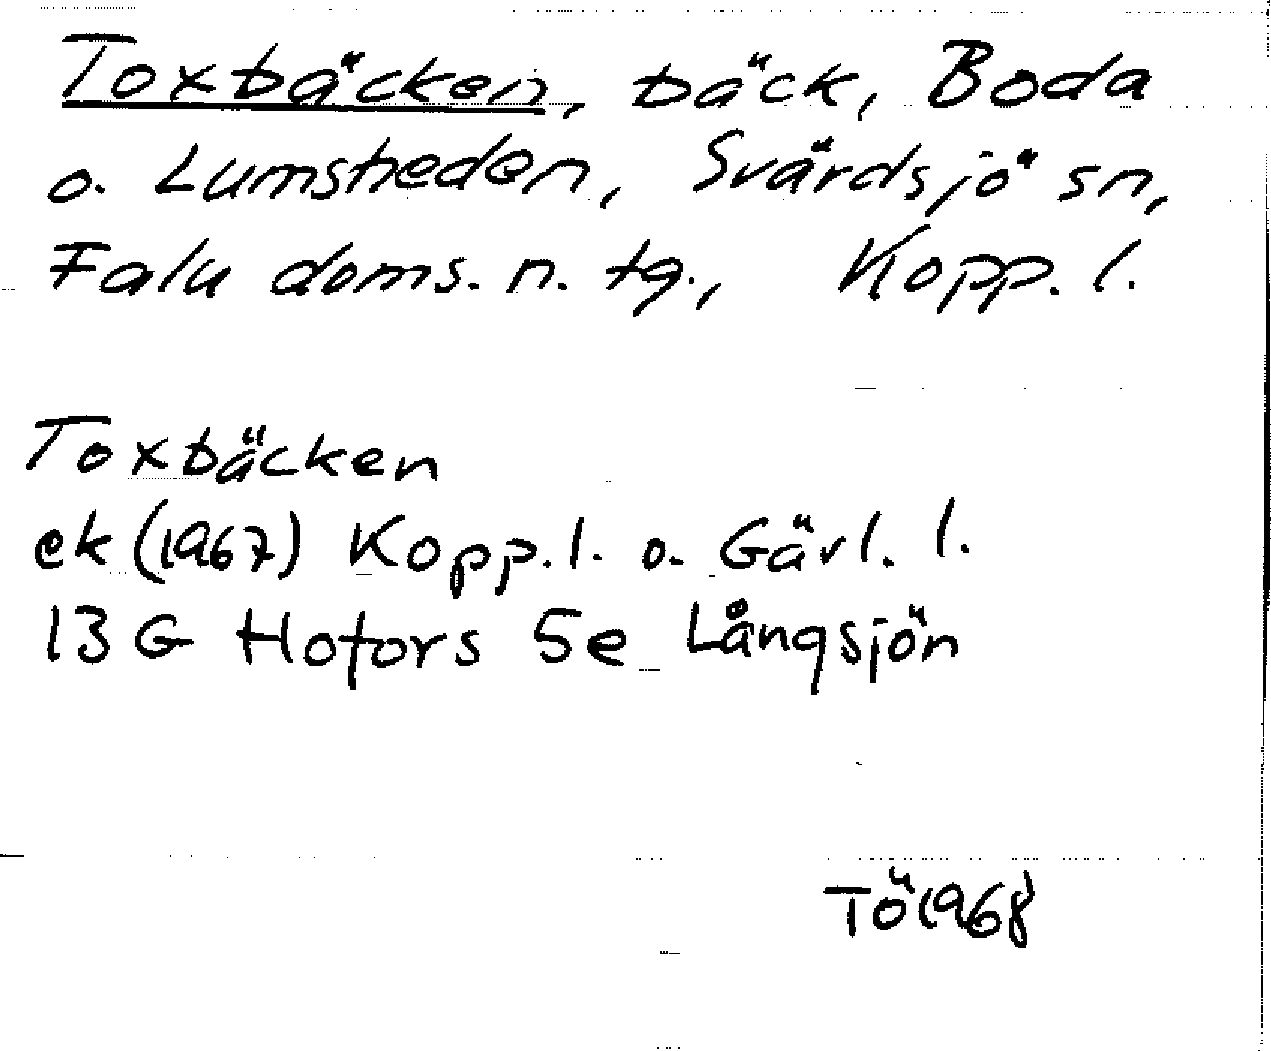 Toxbäcken, bäck, Boda
o. Lumsheden, Svärdsjö sn,
Falu doms. n. tg., Kopp. l.
Toxbäcken
ek (1967) Kopp. l. o. Gävl. l.
13 G Hofors 5e Långsjön
TÖ 1968